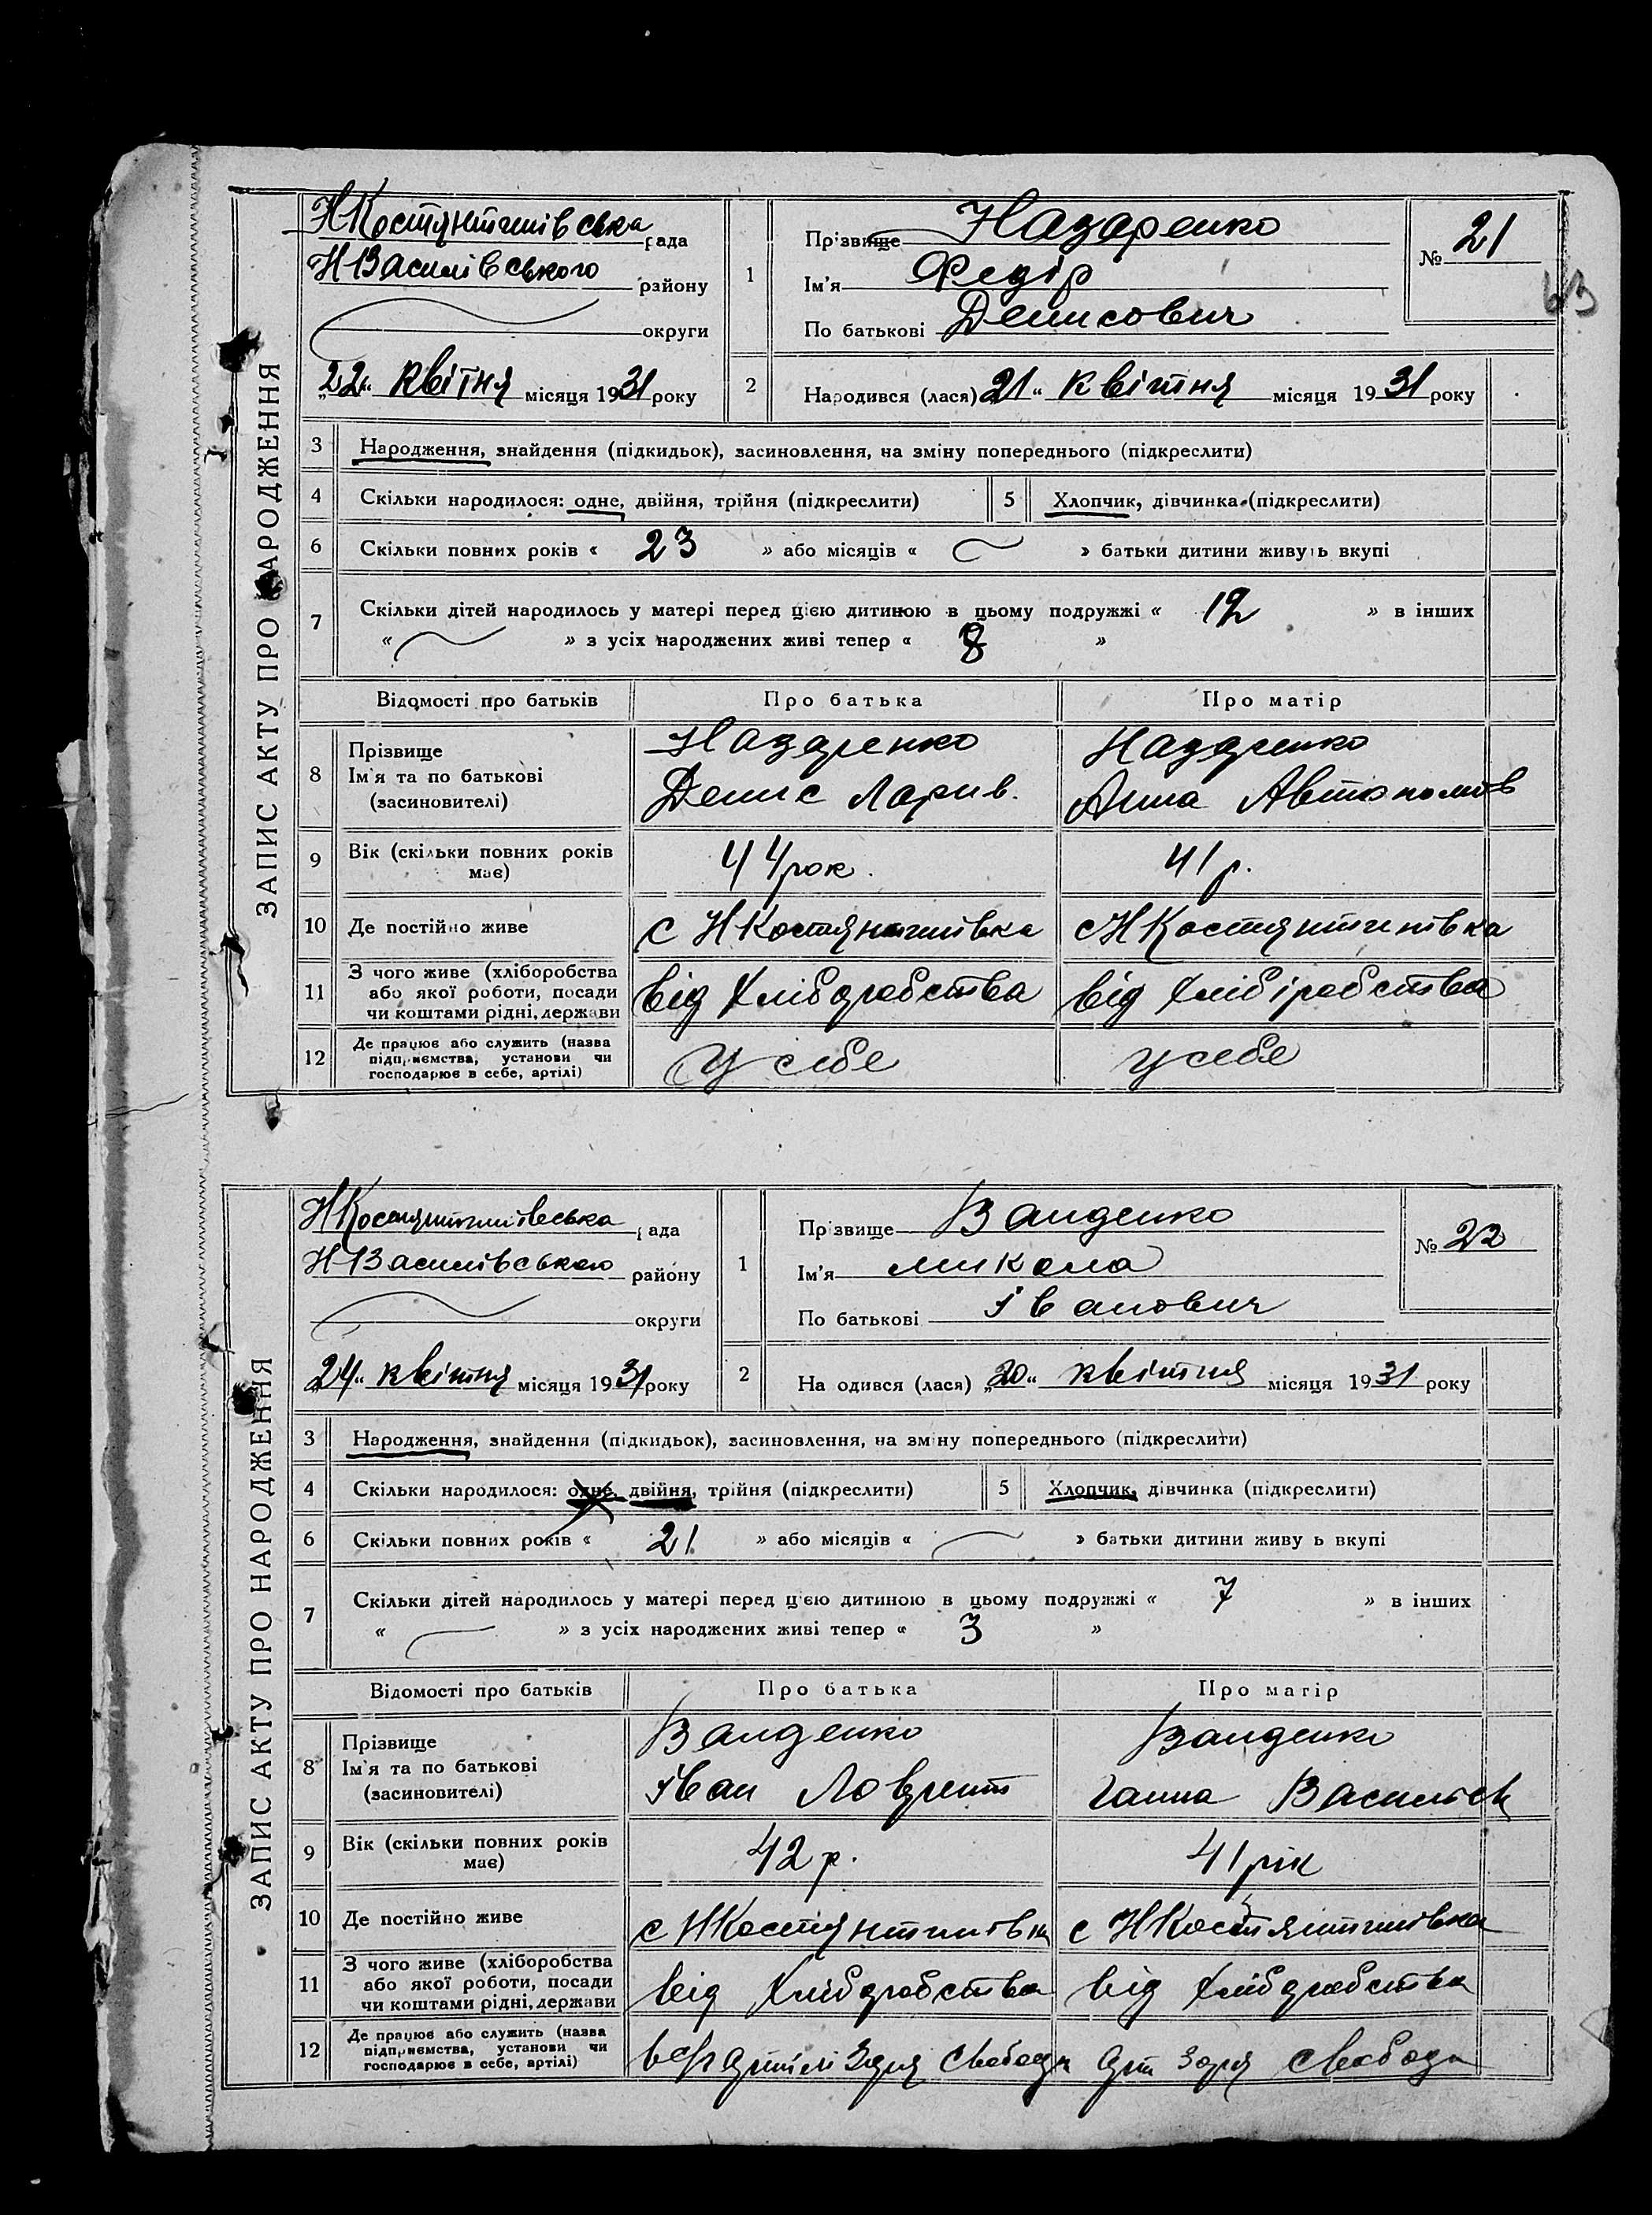 ЗАПИС АКТУ ПРО НАРОДЖЕННЯ
Н Костянтинівська рада
Н Василівського району
округи
„22“ квітня місяця 1931 року
1
Прізвище Назаренко
Ім'я Федір
По батькові Денисович
№ 21
63
2
Народився (лася) „21“ квітня місяця 1931 року
3 Народження, знайдення (підкидьок), засиновлення, на зміну попереднього (підкреслити)
4 Скільки народилося: одне, двійня, трійня (підкреслити) 5 Хлопчик, дівчинка (підкреслити)
6 Скільки повних років « 23 » або місяців « » батьки дитини живуть вкупі
7 Скільки дітей народилось у матері перед цією дитиною в цьому подружжі « 12 » в інших
« » з усіх народжених живі тепер « 8 »
Відомості про батьків Про батька Про матір
8 Прізвище Ім'я та по батькові (засиновителі)
Назаренко Назаренко
Денис Ларив. Анна Автономов
9 Вік (скільки повних років має) 44 рок. 41 р.
10 Де постійно живе с Н Костянтинівка с Н Костянтинівка
11 З чого живе (хліборобства або якої роботи, посади чи коштами рідні, держави від хліборобства від хліборобства
12 Де працює або служить (назва підприємства, установи чи господарює в себе, артілі) у себе у себе
ЗАПИС АКТУ ПРО НАРОДЖЕННЯ
Н Костянтинівська рада
Н Василівського району
округи
„24“ квітня місяця 1931 року
1
Прізвище Ванденко
Ім'я микола
По батькові іванович
№ 22
2
Народився (лася) „20“ квітня місяця 1931 року
3 Народження, знайдення (підкидьок), засиновлення, на зміну попереднього (підкреслити)
4 Скільки народилося: одне, двійня, трійня (підкреслити) 5 Хлопчик, дівчинка (підкреслити)
6 Скільки повних років « 21 » або місяців « » батьки дитини живуть вкупі
7 Скільки дітей народилось у матері перед цією дитиною в цьому подружжі « 7 » в інших
« » з усіх народжених живі тепер « 3 »
Відомості про батьків Про батька Про матір
8 Прізвище Ім'я та по батькові (засиновителі)
Ванденко Ванденко
іван Лаврент ганна Василіев
9 Вік (скільки повних років має) 42 р. 41 рік
10 Де постійно живе с Н Костянтинівка с Н Костянтинівка
11 З чого живе (хліборобства або якої роботи, посади чи коштами рідні, держави від хліборобства від хліборобства
12 Де працює або служить (назва підприємства, установи чи господарює в себе, артілі) артілі Зоря Свободи арт Зоря Свободи